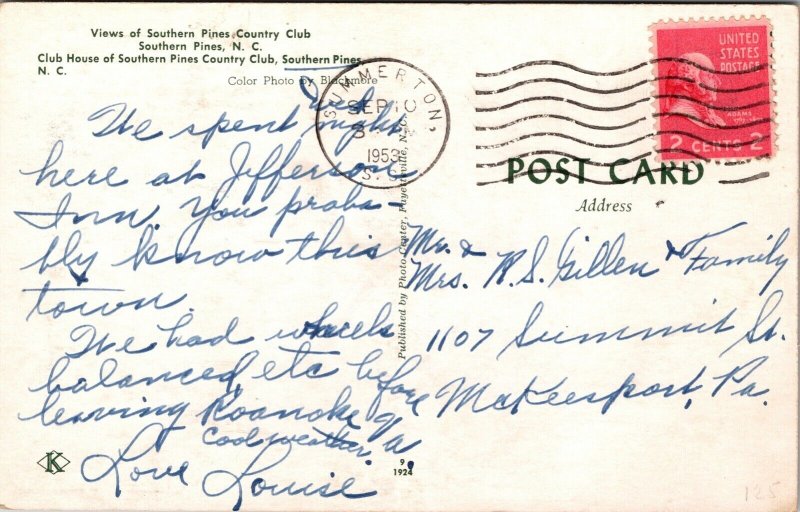 Views of Southern Pines Country Club
Southern Pines, N. C.
Club House of Southern Pines Country Club, Southern Pines,
N. C.
Color Photo by Blackmore
We spent Wed. night
here at Jefferson
Inn. You proba-
bly know this
town.
We had wheels
balanced, etc before
leaving Roanoke, Va
Cool weather.
Love Louise
K
SUMMERTON,
SEP 10
1953
S. C.
UNITED
STATES
POSTAGE
ADAMS
2 CENTS 2
POST CARD
Address
Mr. &
Mrs. R. S. Gillen & Family
1107 Summit St.
McKeesport, Pa.
Published by Photo Center, Fayetteville, N. C.
9
1924
125